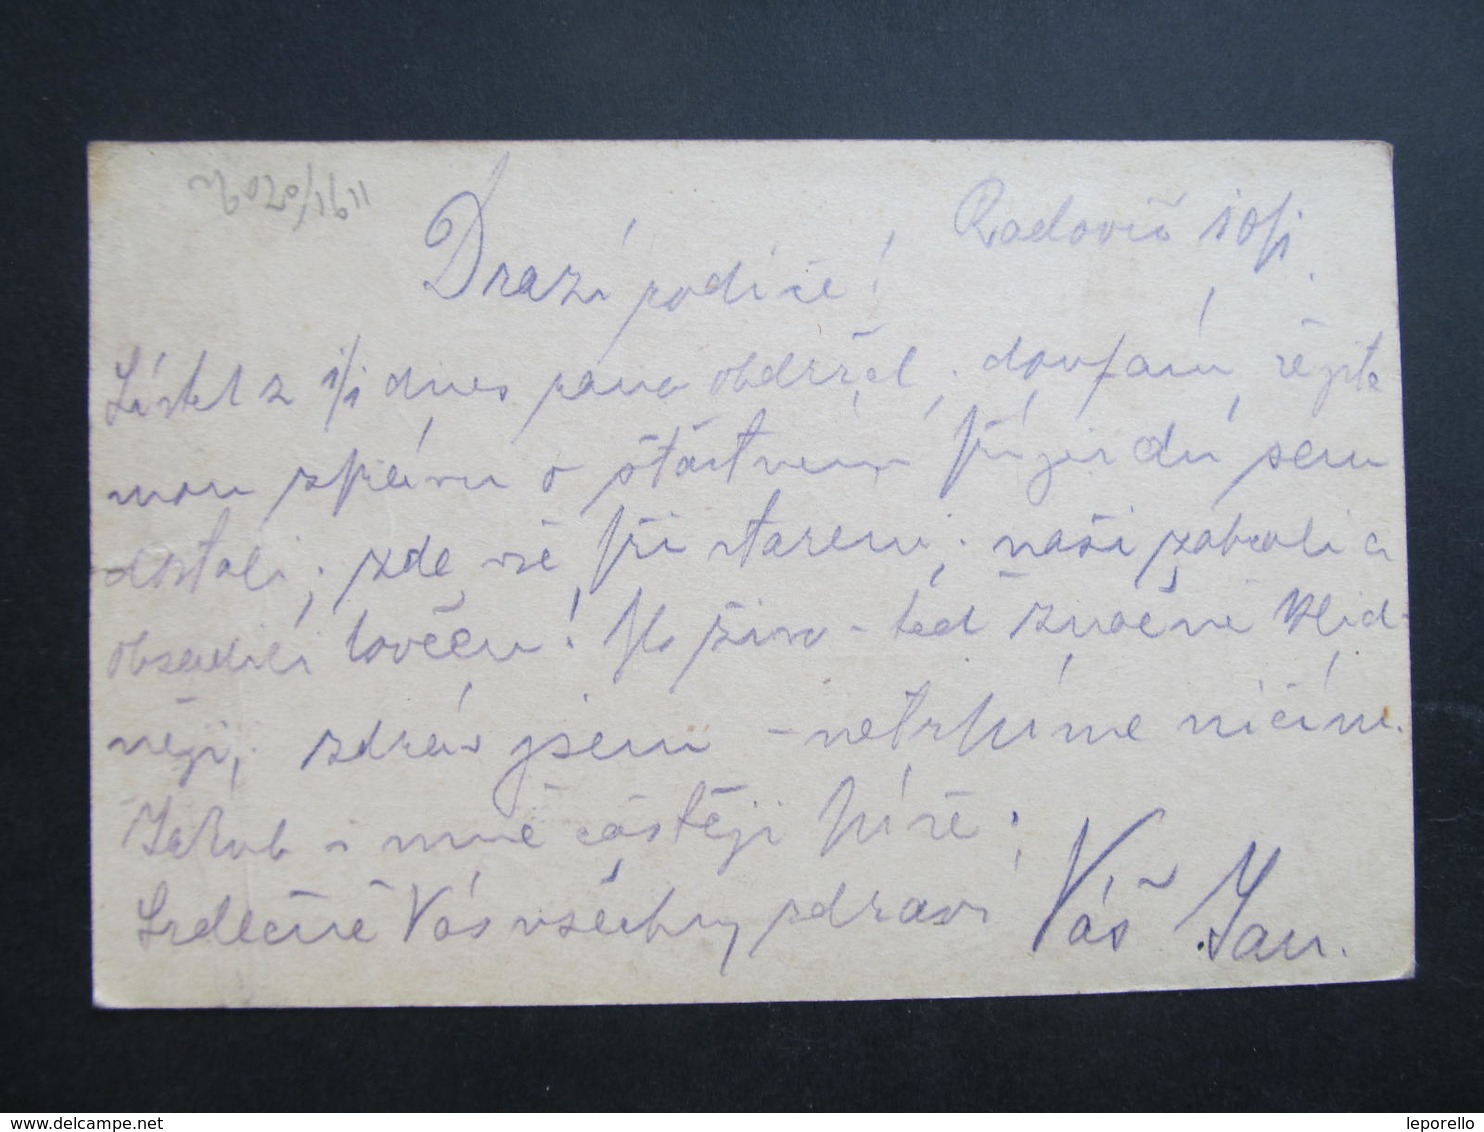 Radovič 10/I.
Drazí rodiče!
Lístek z 1/I dnes ráno obdržel, doufám, že jste
mou zprávu o šťastném příjezdu sem
dostali; zde vše při starém, naši zabrali a
obsadili Lovčen! Po živo - teď značně klid-
něji, zdráv jsem - netrpíme ničím.
Jakub i mně častěji píše;
Srdečně Vás všechny zdraví Váš Jan.
leporello